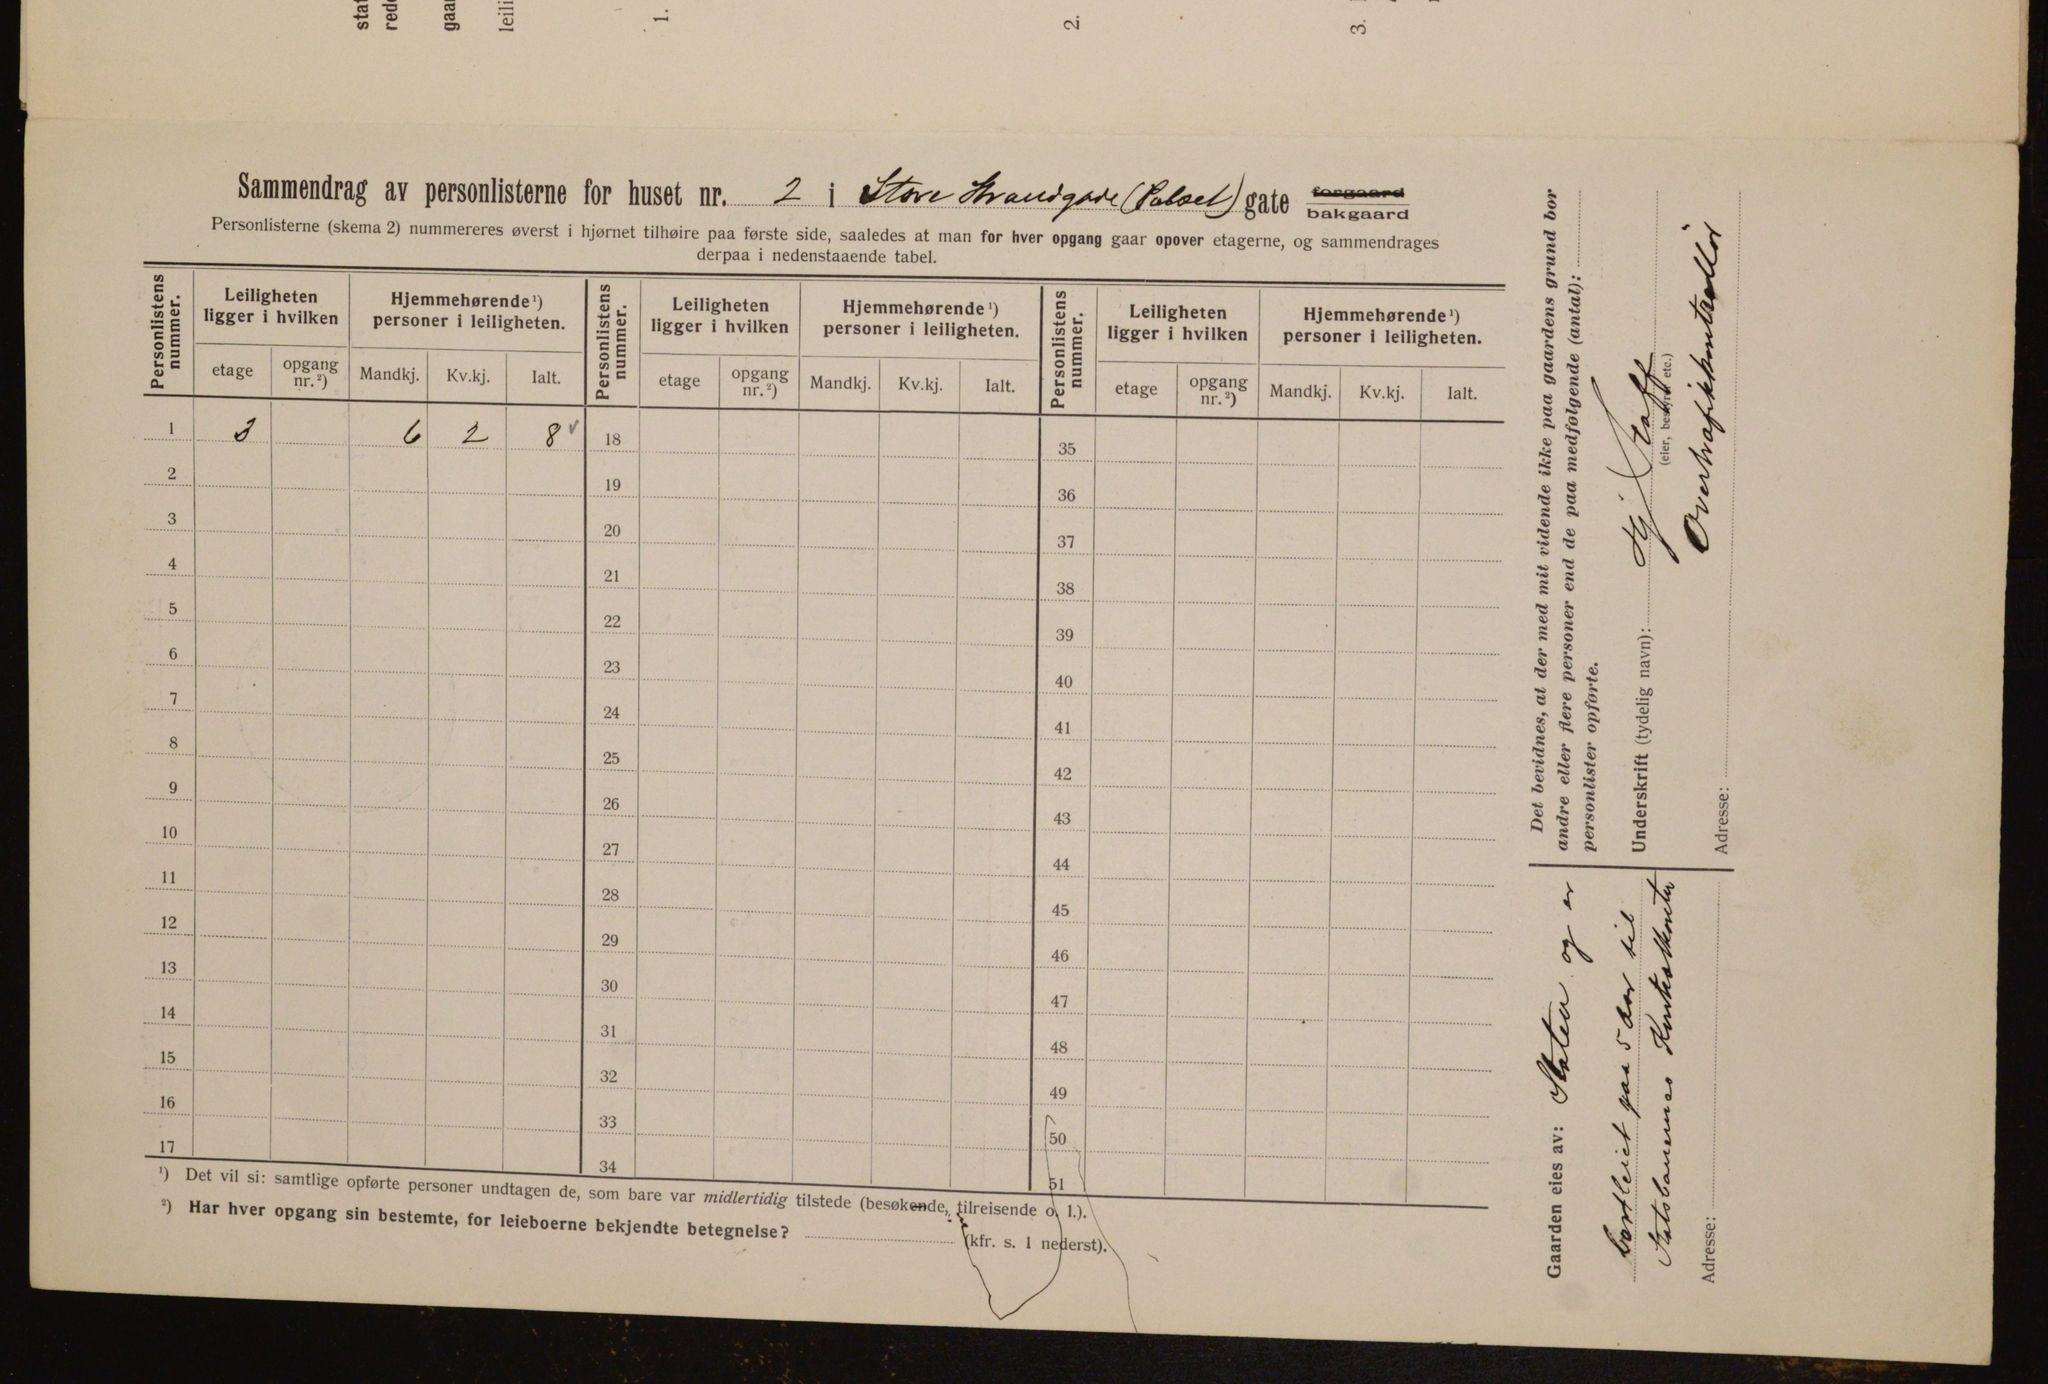 stat
rede
gaar
leili
1.
2.
3.
Sammendrag av personlisterne for huset nr. 2 i Store Strandgade (Palæet) gate forgaard bakgaard
Personlisterne (skema 2) nummereres øverst i hjørnet tilhøire paa første side, saaledes at man for hver opgang gaar opover etagerne, og sammendrages
derpaa i nedenstaaende tabel.
Personlistens nummer. Leiligheten ligger i hvilken Hjemmehørende ¹) personer i leiligheten. Personlistens nummer. Leiligheten ligger i hvilken Hjemmehørende ¹) personer i leiligheten. Personlistens nummer. Leiligheten ligger i hvilken Hjemmehørende ¹) personer i leiligheten.
etage opgang nr. ²) Mandkj. Kv.kj. Ialt. etage opgang nr. ²) Mandkj. Kv.kj. Ialt. etage opgang nr. ²) Mandkj. Kv.kj. Ialt.
1 3 6 2 8 18 35
2 19 36
3 20 37
4 21 38
5 22 39
6 23 40
7 24 41
8 25 42
9 26 43
10 27 44
11 28 45
12 29 46
13 30 47
14 31 48
15 32 49
16 33 50
17 34 51
¹) Det vil si: samtlige opførte personer undtagen de, som bare var midlertidig tilstede (besøkende, tilreisende o. l.).
²) Har hver opgang sin bestemte, for leieboerne bekjendte betegnelse? (kfr. s. 1 nederst).
Det bevidnes, at der med mit vidende ikke paa gaardens grund bor
andre eller flere personer end de paa medfølgende (antal):
personlister opførte.
Underskrift (tydelig navn): Hj.
(eier, bestyrer etc.)
Overtrafikkontrollør
Adresse:
Gaarden eies av: Staten og er
bortleiet paa 5 aar til
Statsbanernes
Adresse: